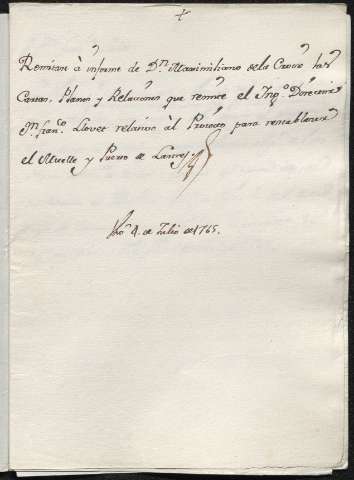 +
Remitan à informe de Dn. Maximiliano de la Croix las
Cartas, Planos y Relaciones que remite el Ingo. Director
Dn. Franco. Llovet relativo àl Proyecto para restablecer
el Muelle y Puerto de
4. de Julio de 1765.